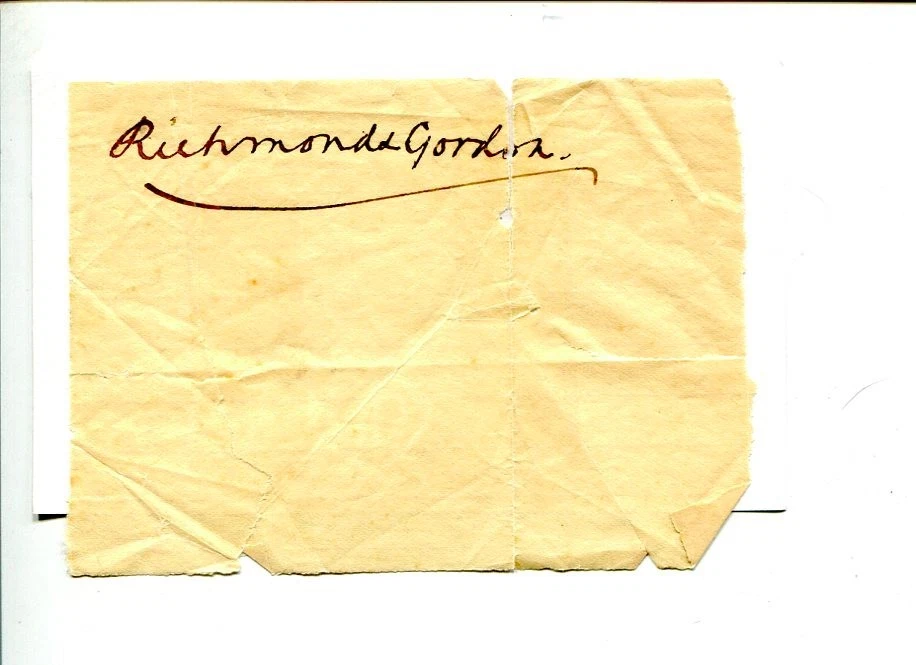 Richmond & Gordon.